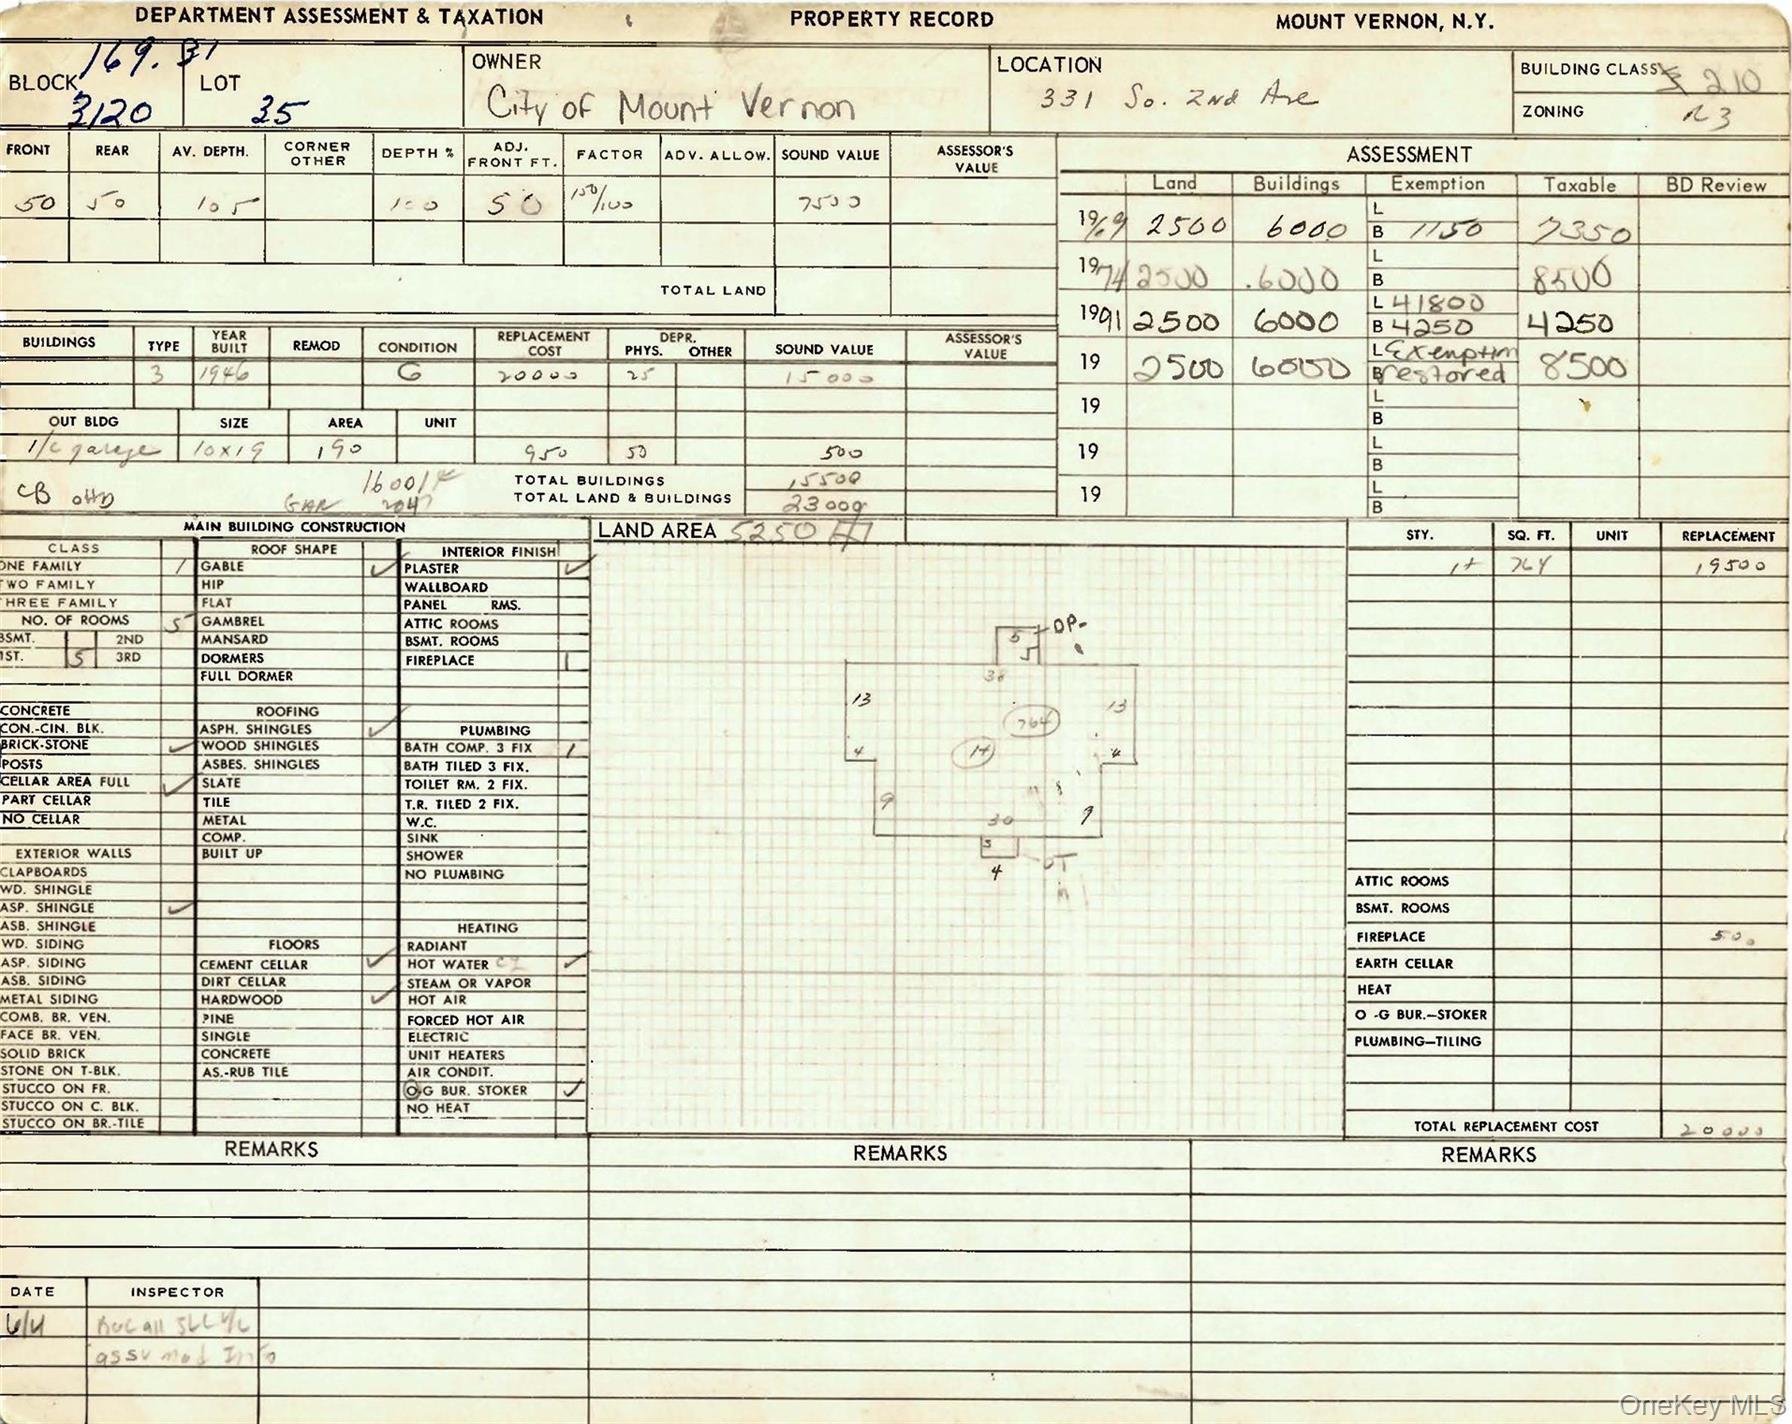 DEPARTMENT ASSESSMENT & TAXATION PROPERTY RECORD MOUNT VERNON, N.Y.
169.31
BLOCK 3120 LOT 35
OWNER City of Mount Vernon
LOCATION 331 So. 2nd Ave
BUILDING CLASS 210
ZONING R3
FRONT REAR AV. DEPTH. CORNER OTHER DEPTH % ADJ. FRONT FT. FACTOR ADV. ALLOW. SOUND VALUE ASSESSOR'S VALUE
50 50 105 100 50 150/100 7500
TOTAL LAND
ASSESSMENT
Land Buildings Exemption Taxable BD Review
1969 2500 6000 L B 1150 7350
1974 2500 6000 L B 8500
1991 2500 6000 L 41800 B 4250 4250
19 2500 6000 L Exemption B restored 8500
19 L B
19 L B
19 L B
BUILDINGS TYPE YEAR BUILT REMOD CONDITION REPLACEMENT COST DEPR. PHYS. OTHER SOUND VALUE ASSESSOR'S VALUE
3 1946 G 20000 25 15000
OUT BLDG SIZE AREA UNIT
1/c garage 10x19 190 950 50 500
CB OHD
GAR
TOTAL BUILDINGS 15500
TOTAL LAND & BUILDINGS 23000
MAIN BUILDING CONSTRUCTION
CLASS
ONE FAMILY 1
TWO FAMILY
THREE FAMILY
NO. OF ROOMS 5
BSMT. 2ND
1ST. 5 3RD
CONCRETE
CON.-CIN. BLK.
BRICK-STONE ✓
POSTS
CELLAR AREA FULL ✓
PART CELLAR
NO CELLAR
EXTERIOR WALLS
CLAPBOARDS
WD. SHINGLE
ASP. SHINGLE ✓
ASB. SHINGLE
WD. SIDING
ASP. SIDING
ASB. SIDING
METAL SIDING
COMB. BR. VEN.
FACE BR. VEN.
SOLID BRICK
STONE ON T-BLK.
STUCCO ON FR.
STUCCO ON C. BLK.
STUCCO ON BR.-TILE
ROOF SHAPE
GABLE ✓
HIP
FLAT
GAMBREL
MANSARD
DORMERS
FULL DORMER
ROOFING
ASPH. SHINGLES ✓
WOOD SHINGLES
ASBES. SHINGLES
SLATE
TILE
METAL
COMP.
BUILT UP
FLOORS
CEMENT CELLAR ✓
DIRT CELLAR
HARDWOOD ✓
PINE
SINGLE
CONCRETE
AS.-RUB TILE
INTERIOR FINISH
PLASTER ✓
WALLBOARD
PANEL RMS.
ATTIC ROOMS
BSMT. ROOMS
FIREPLACE 1
PLUMBING
BATH COMP. 3 FIX 1
BATH TILED 3 FIX.
TOILET RM. 2 FIX.
T.R. TILED 2 FIX.
W.C.
SINK
SHOWER
NO PLUMBING
HEATING
RADIANT
HOT WATER ✓
STEAM OR VAPOR
HOT AIR
FORCED HOT AIR
ELECTRIC
UNIT HEATERS
AIR CONDIT.
O-G BUR. STOKER ✓
NO HEAT
LAND AREA 5250
5 OP
5
38
13 13
764
1+
4 4
9 9
30
3
4
STY. SQ. FT. UNIT REPLACEMENT
1+ 764 19500
ATTIC ROOMS
BSMT. ROOMS
FIREPLACE 500
EARTH CELLAR
HEAT
O -G BUR.—STOKER
PLUMBING—TILING
TOTAL REPLACEMENT COST 20000
REMARKS REMARKS REMARKS
DATE INSPECTOR
OneKey MLS